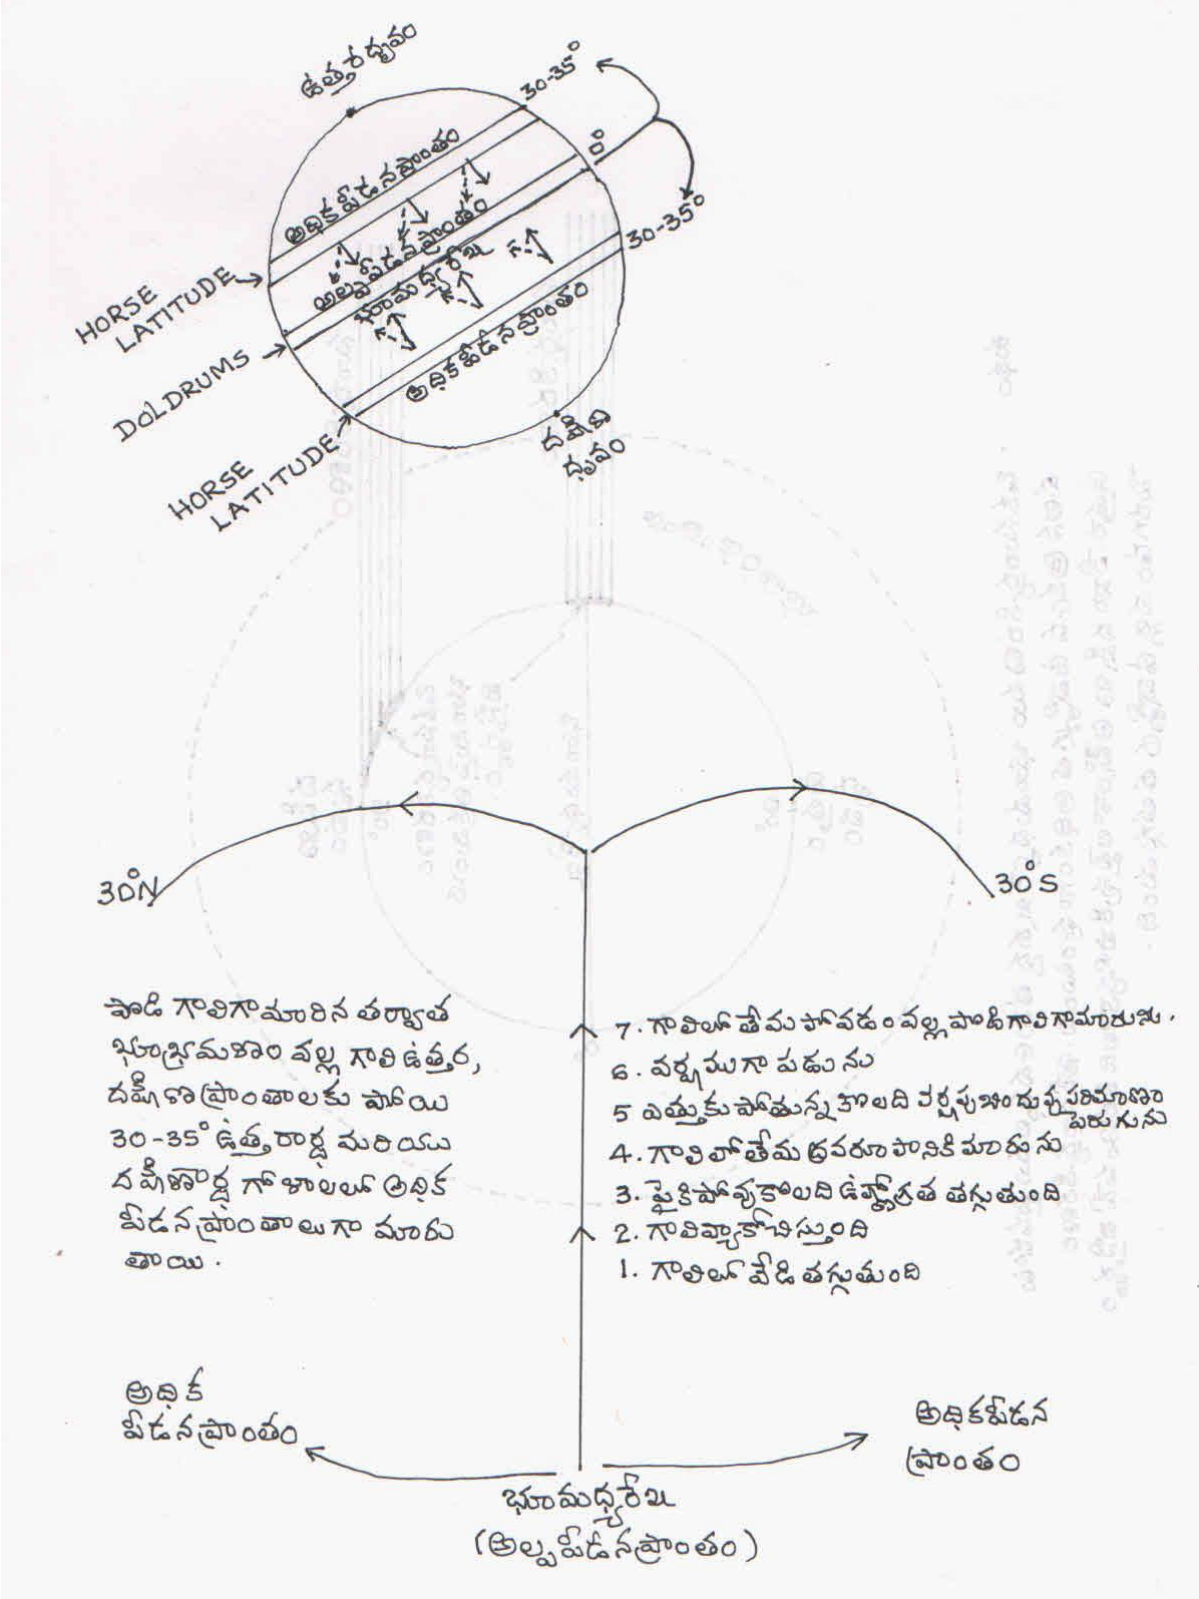 ఉత్తరధృవం
30-35°
అధికపీడనప్రాంతం
0°
అల్పపీడనప్రాంతం
భూమధ్యరేఖ
30-35°
HORSE
LATITUDE
అధికపీడనప్రాంతం
DOLDRUMS
దక్షిణ
ధృవం
HORSE
LATITUDE
30°N
30°S
పొడి గాలిగామారిన తర్వాత
భూభ్రమణం వల్ల గాలి ఉత్తర,
దక్షిణాప్రాంతాలకు పోయి
30-35° ఉత్తరార్ధ మరియు
దక్షిణార్ధ గోళాలలో అధిక
పీడనప్రాంతాలుగా మారు
తాయి.
7. గాలిలో తేమ పోవడం వల్ల పొడిగాలిగామారును.
6. వర్షముగా పడును
5 ఎత్తుకు పోతున్న కొలది వర్షపుబిందువు పరిమాణం
పెరుగును
4. గాలిలోతేమ ద్రవరూపానికి మారును
3. పైకిపోవుకొలది ఉష్ణోగ్రత తగ్గుతుంది
2. గాలివ్యాకోచిస్తుంది
1. గాలిలో వేడి తగ్గుతుంది
అధిక
పీడనప్రాంతం
అధికపీడన
ప్రాంతం
భూమధ్యరేఖ
(అల్పపీడనప్రాంతం)